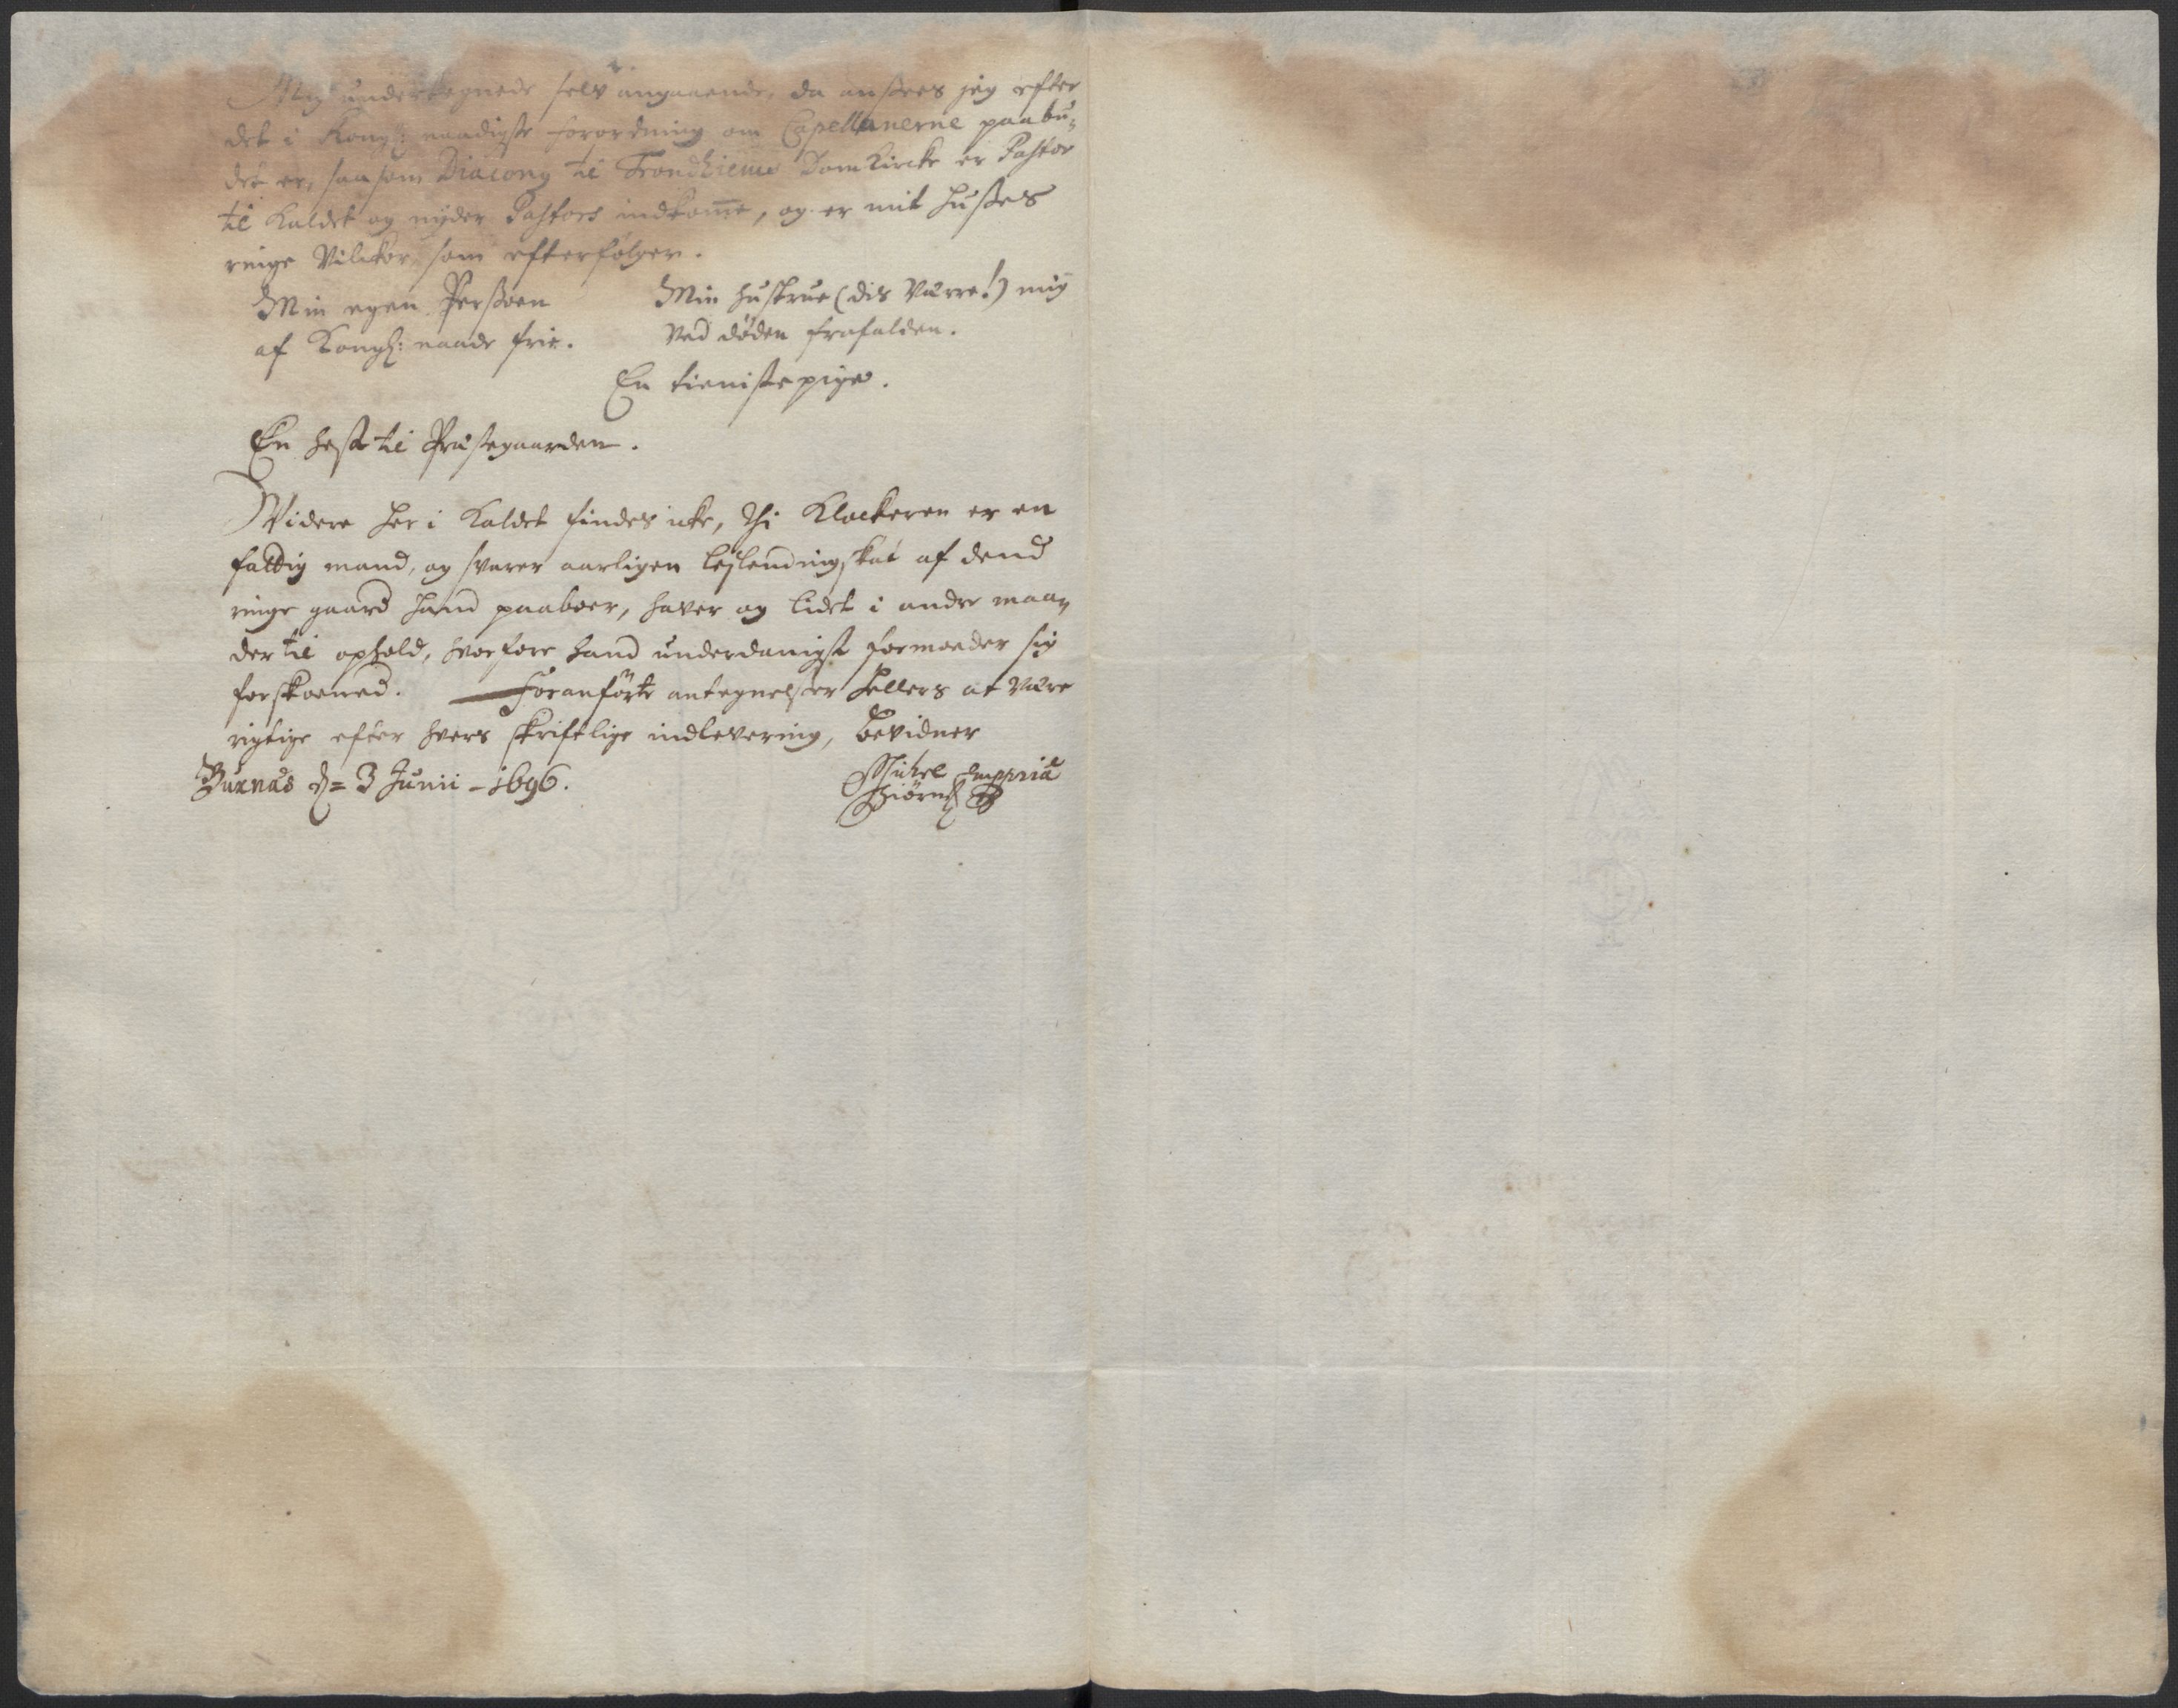 Mig undertegnede selv angaaende, da ansees jeg efter
det i Kongl: naadigste forordning om Capellanerne paabu-
det er, saasom Diacong til Trondhiems Domkircke er Pastor
til Kaldet og nyder Pastors indkomme, og er mit Husses
ringe Vilckor som efterfølger.
Min egen Persoen
Min Hustrue (dis Værre!) mig
af Kongl: naade frie.
Ved døden frafalden.
En tieniste pige.
En hest til Præstegaarden.
Videre her i Kaldet findes icke, Thi Klockeren er en
fattig mand, og svarer aarligen leylendingskat af dend
ringe gaard Hand paaboer, haver og lidet i andre maa-
der til ophold, hvorfore Hand underdanigst formoeder sig
forskoened. Foranførte antegnelser Hellers at Være
rigtige efter hvers skriftlige indlevering, bevidner
Buxnæs d= 3 Junii - 1696.
Michel
Biørns
mppria